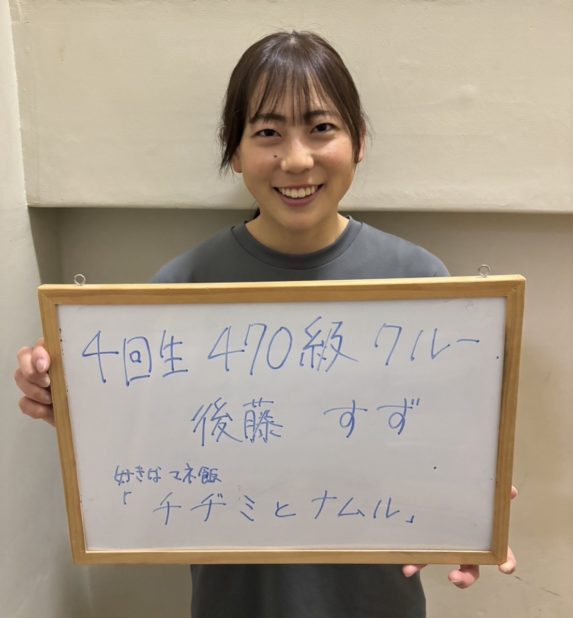 4回生 470級 クルー
後藤 すず
好きなマネ飯
「チヂミとナムル」